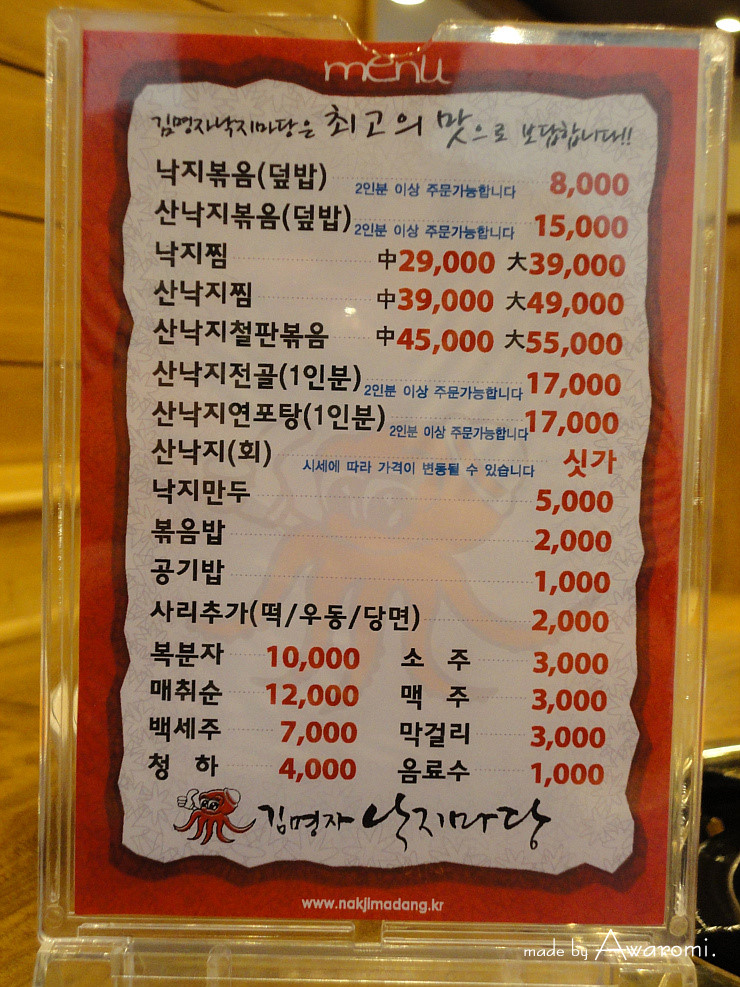 menu
김명자낙지마당은 최고의 맛으로 보답합니다!!
낙지볶음(덮밥) 2인분 이상 주문가능합니다 8,000
산낙지볶음(덮밥) 2인분 이상 주문가능합니다 15,000
낙지찜 中29,000 大39,000
산낙지찜 中39,000 大49,000
산낙지철판볶음 中45,000 大55,000
산낙지전골(1인분) 2인분 이상 주문가능합니다 17,000
산낙지연포탕(1인분) 2인분 이상 주문가능합니다 17,000
산낙지(회) 시세에 따라 가격이 변동될 수 있습니다 싯가
낙지만두 5,000
볶음밥 2,000
공기밥 1,000
사리추가(떡/우동/당면) 2,000
복분자 10,000 소 주 3,000
매취순 12,000 맥 주 3,000
백세주 7,000 막걸리 3,000
청 하 4,000 음료수 1,000
김명자 낙지마당
www.nakjimadang.kr
made by Awaromi.